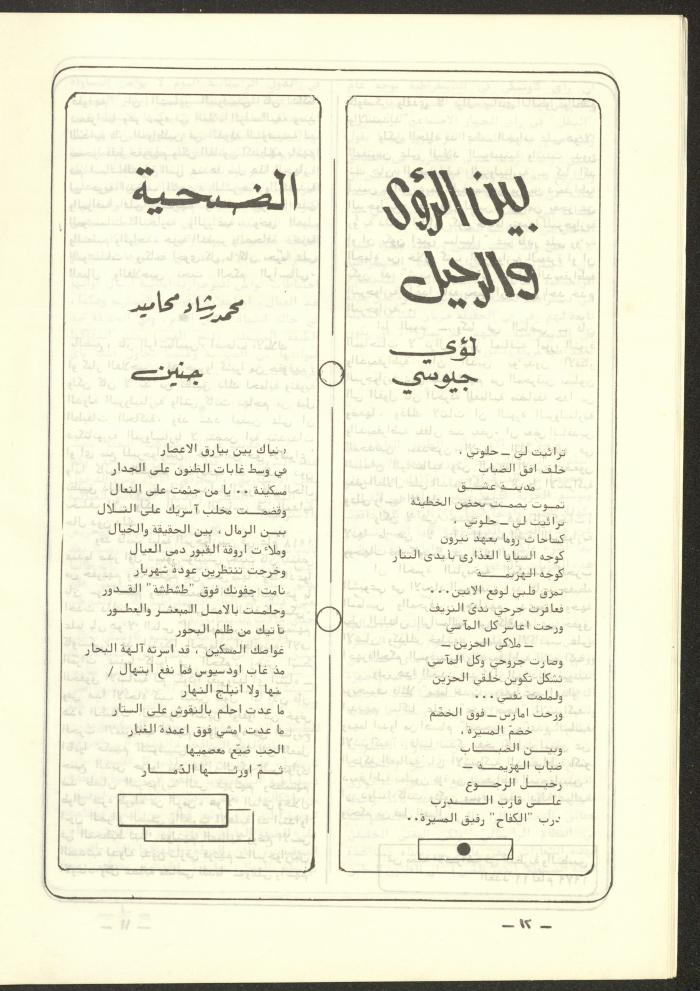 بين الرؤى
والرحيل
لؤي
جيوسي
ترائيت لي ــ حلوتي ،
خلف افق الضباب
مدينة عشق
تموت بصمت بحضن الخطيئة
ترائيت لي ــ حلوتي ،
كساحات روما بعهد نيرون
كوجه السبايا العذارى بأيدي التتار
كوجه الهزيمة
تمزق قلبي لوقع الانين...
فعاقرت جرحي ندى النزيف
ورحت اعاشر كل المآسي
ــ ملاكي الحزين ــ
وصارت جروحي وكل المآسي
تشكل تكوين خلقي الحزين
ولملمت نفسي...
ورحت امارس ــ فوق الخضّم
خضم المسيرة ،
وبين الضباب
ضباب الهزيمة ــ
رحيل الرجوع
على قارب الدرب
درب "الكفاح" رفيق المسيرة..
الضحية
محمد رشاد محاميد
جنين
بين بيارق الاعصار
في وسط غابات الظنون على الجدار
مسكينة .. يا من جثمت على التعال
وقضمت مخلب آسريك على التلال
بين الرمال ، بين الحقيقة والخيال
وملأت اروقة القبور دمى العيال
وخرجت تنتظرين عودة شهريار
نامت جفونك فوق "طشطشة" القدور
وحلمت بالامل المبعثر والعطور
تأتيك من ظلم البحور
غواصك المسكين ، قد اسرته آلهة البحار
مذ غاب اودسيوس فما نفع ابتهال /
ولا انبلج النهار
ما عدت احلم بالنقوش على الستار
ما عدت امشي فوق اعمدة الغبار
الجب ضيّع معصميها
ثمّ اورثها الدّمار
ــ ١٢ ــ